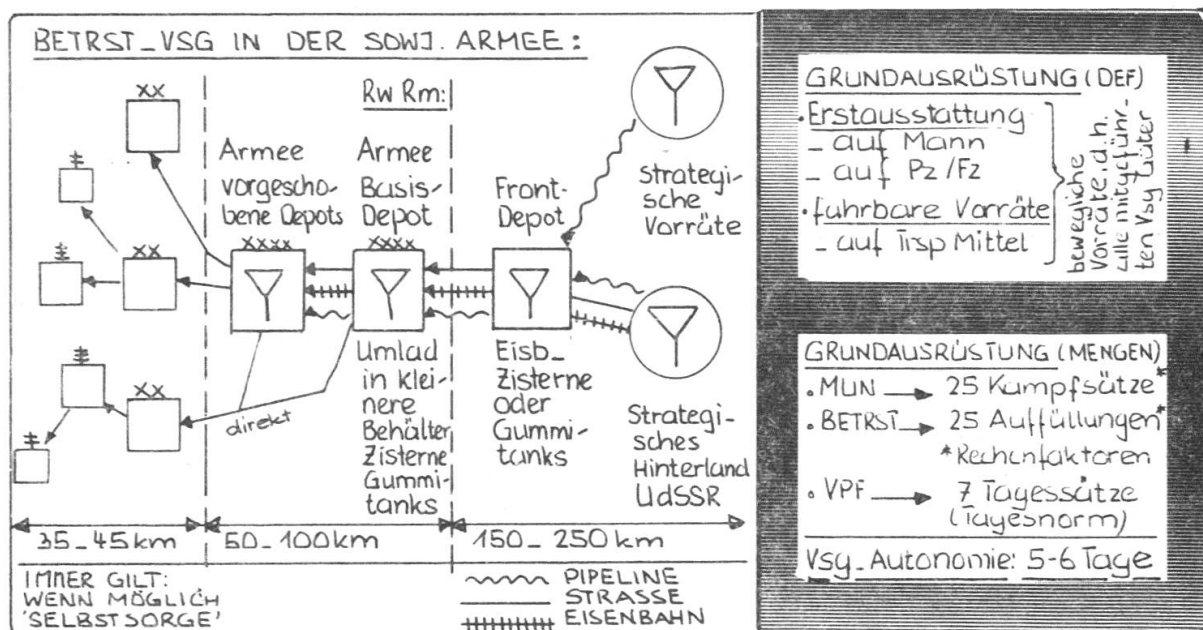 BETRST_VSG IN DER SOWJ. ARMEE:
XX
Rw Rm:
Armee
vorgescho-
bene Depots
Armee
Basis-
Depot
Front-
Depot
Strategi-
sche
Vorräte
XX
XXXX
XXXX
XX
direkt
Umlad
in klei-
nere
Behälter
Zisterne
Gummi-
tanks
Eisb_
Zisterne
oder
Gummi-
tanks
Strategi-
sches
Hinterland
UdSSR
35_45km
60_100km
150_250km
IMMER GILT:
WENN MÖGLICH
'SELBSTSORGE'
PIPELINE
STRASSE
EISENBAHN
GRUNDAUSRÜSTUNG (DEF)
• Erstausstattung
_ auf Mann
_ auf Pz/Fz
• fuhrbare Vorräte
_ auf Trsp Mittel
bewegliche
Vorräte, d.h.
alle mitgeführ-
ten Vsg Güter
GRUNDAUSRÜSTUNG (MENGEN)
• MUN → 25 Kampfsätze*
• BETRST → 25 Auffüllungen*
*Rechenfaktoren
• VPF → 7 Tagessätze
(Tagesnorm)
Vsg_Autonomie: 5-6 Tage